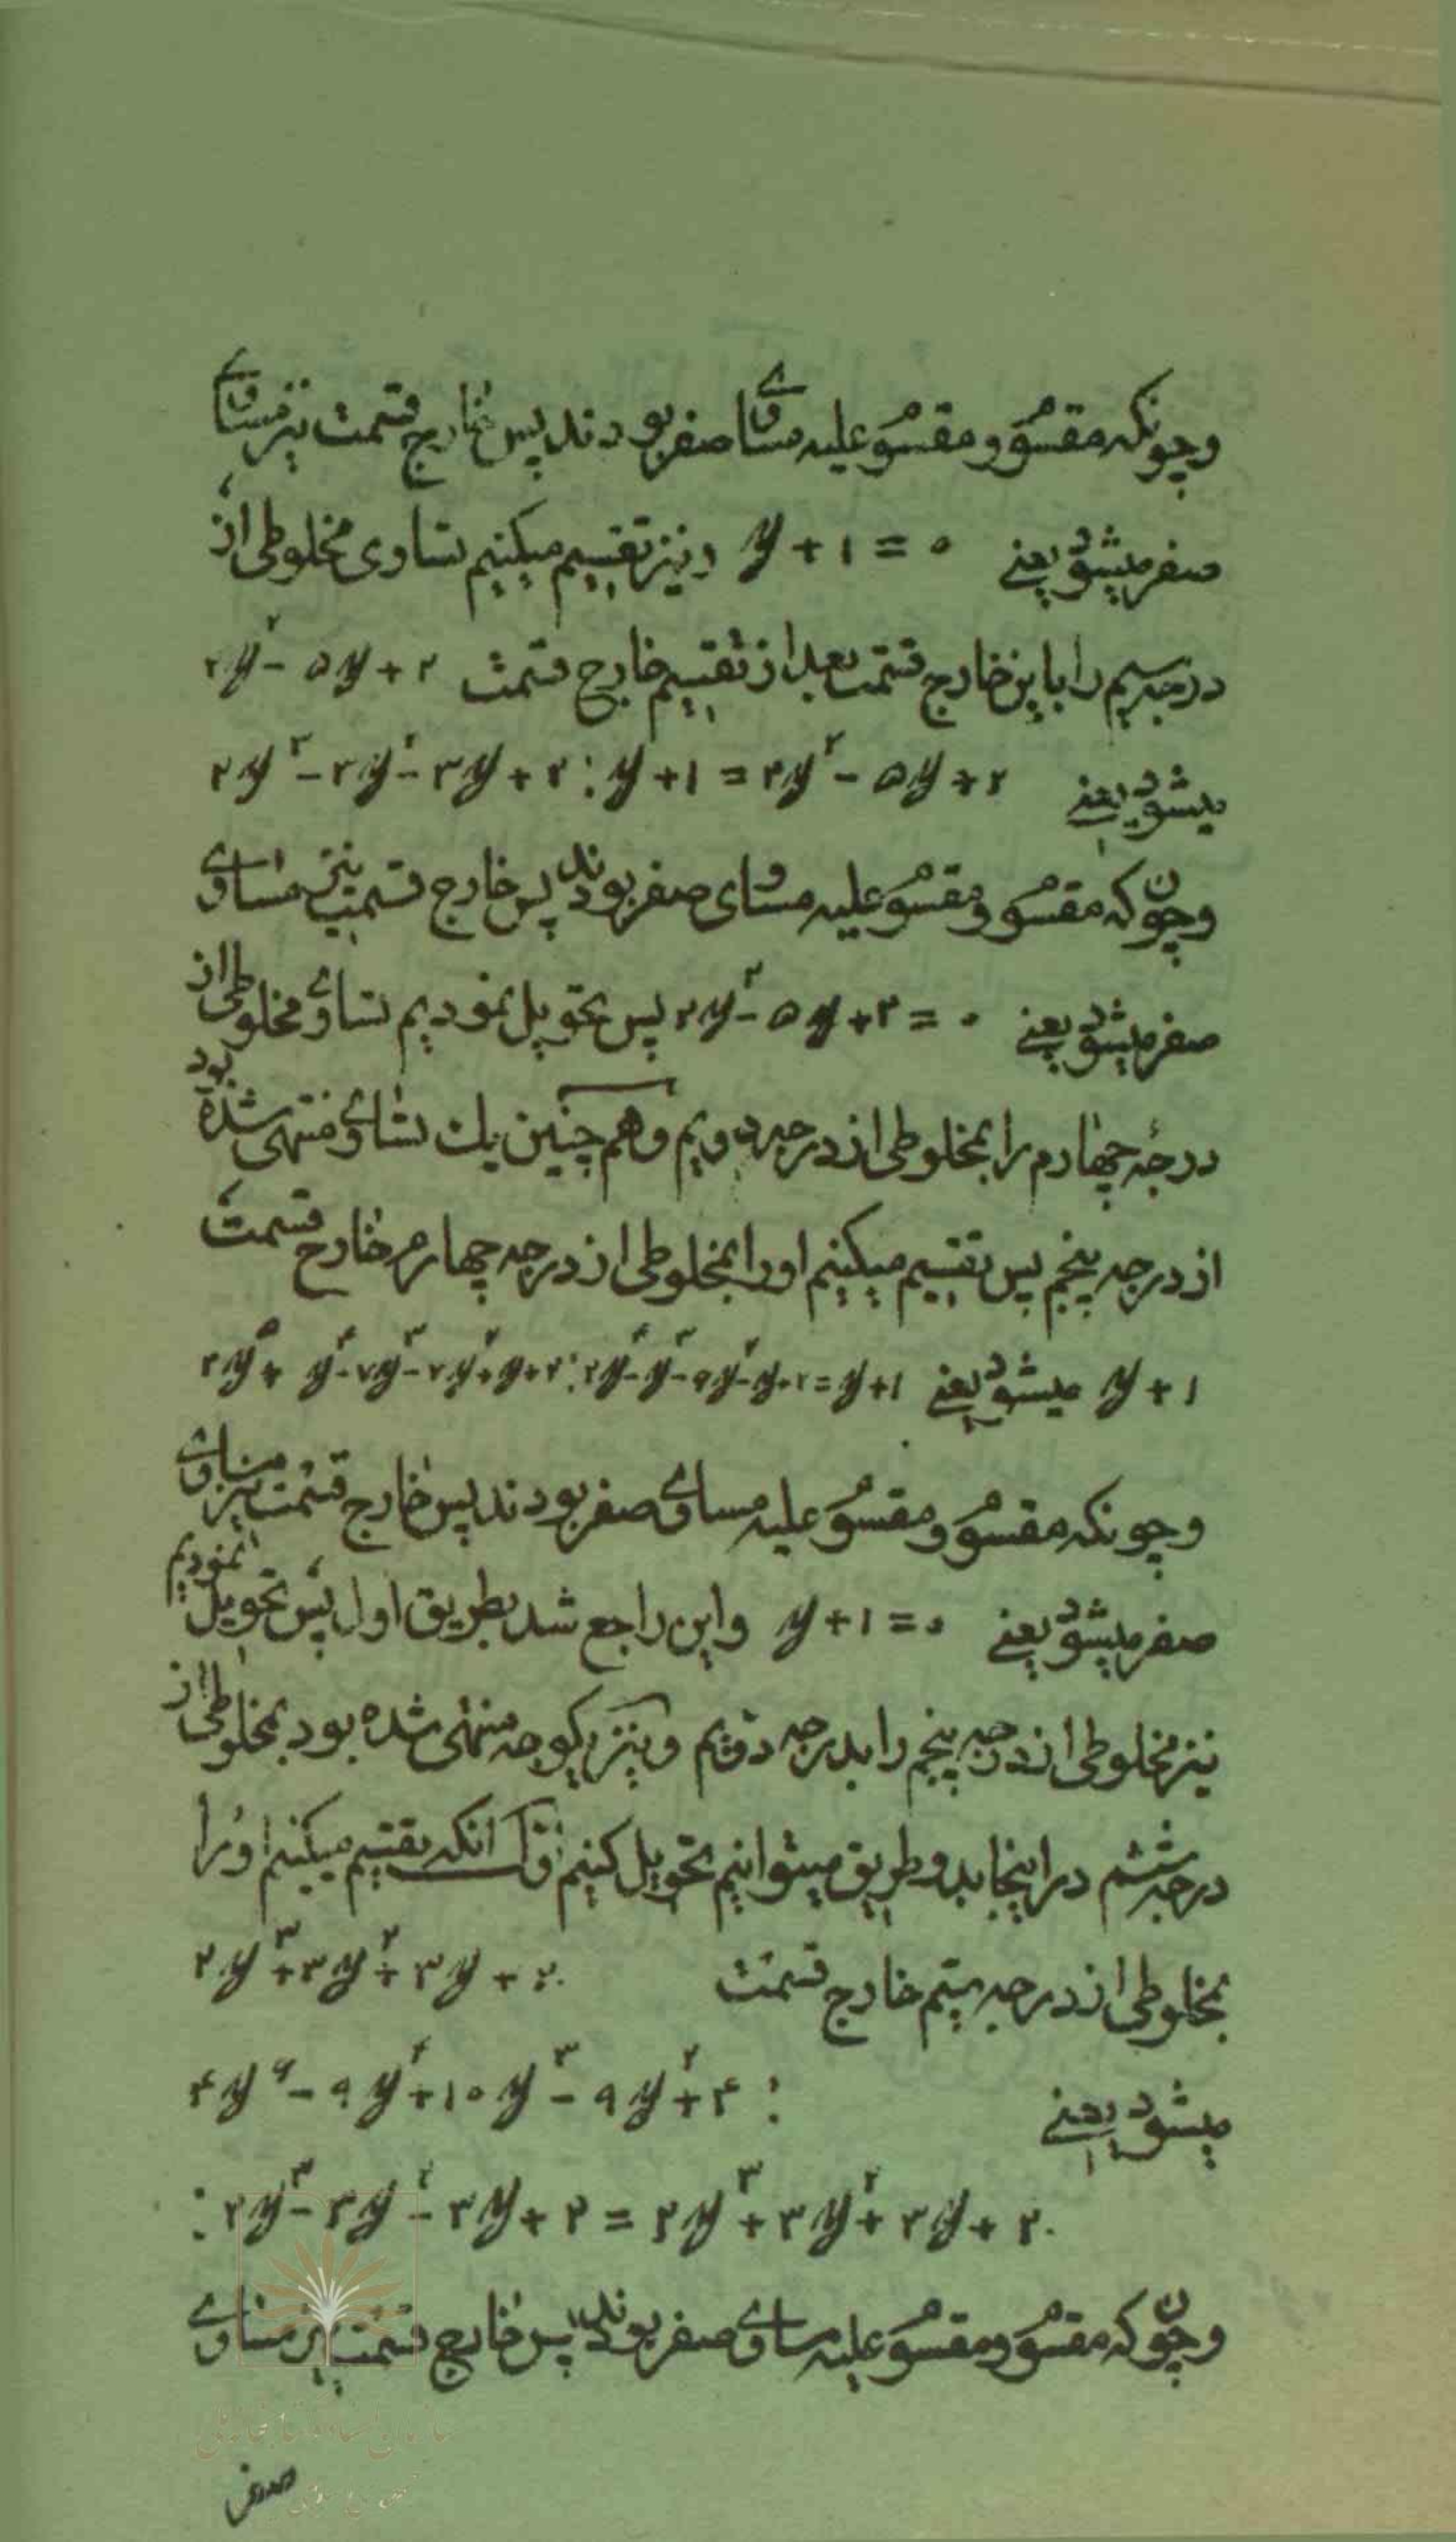 وچونکه مقسوم و مقسوم علیه مساوی صفر بودند پس خارج قسمت نیز مساوی
صفر میشود یعنی y + ۱ = ۰ و نیز تقسیم میکنیم تساوی مخلوطی از
درجه سیم را باین خارج قسمت بعد از تقسیم خارج قسمت ۲y۲ − ۵y + ۲
میشود یعنی ۲y۳ − ۳y۲ − ۳y + ۲ : y + ۱ = ۲y۲ − ۵y + ۲
وچون که مقسوم و مقسوم علیه مساوی صفر بودند پس خارج قسمت نیز مساوی
صفر میشود یعنی ۲y۲ − ۵y + ۲ = ۰ پس تحویل نمودیم تساوی مخلوطی از
درجه چهارم را بمخلوطی از درجه دویم و هم چنین یک تساوی منتهی شده بود
از درجه پنجم پس تقسیم میکنیم او را بمخلوطی از درجه چهارم خارج قسمت
y + ۱ میشود یعنی ۲y۵ + y۴ − ۷y۳ − ۷y۲ + y + ۲ : ۲y۴ − y۳ − ۶y۲ − y + ۲ = y + ۱
وچونکه مقسوم و مقسوم علیه مساوی صفر بودند پس خارج قسمت نیز مساوی
صفر میشود یعنی y + ۱ = ۰ و این راجع شد بطریق اول پس تحویل نمودیم
نیز مخلوطی از درجه پنجم را بدرجه دویم و نیز منتهی شده بود بمخلوطی از
درجه ششم در اینجا بدو طریق میتوانیم تحویل کنیم اول آنکه تقسیم میکنیم او را
بمخلوطی از درجه سیم خارج قسمت ۲y۳ + ۳y۲ + ۳y + ۲
میشود یعنی ۴y۶ − ۹y۴ + ۱۰y۳ − ۹y۲ + ۴ :
: ۲y۳ − ۳y۲ − ۳y + ۲ = ۲y۳ + ۳y۲ + ۳y + ۲
وچون که مقسوم و مقسوم علیه مساوی صفر بودند پس خارج قسمت نیز مساوی
صفر